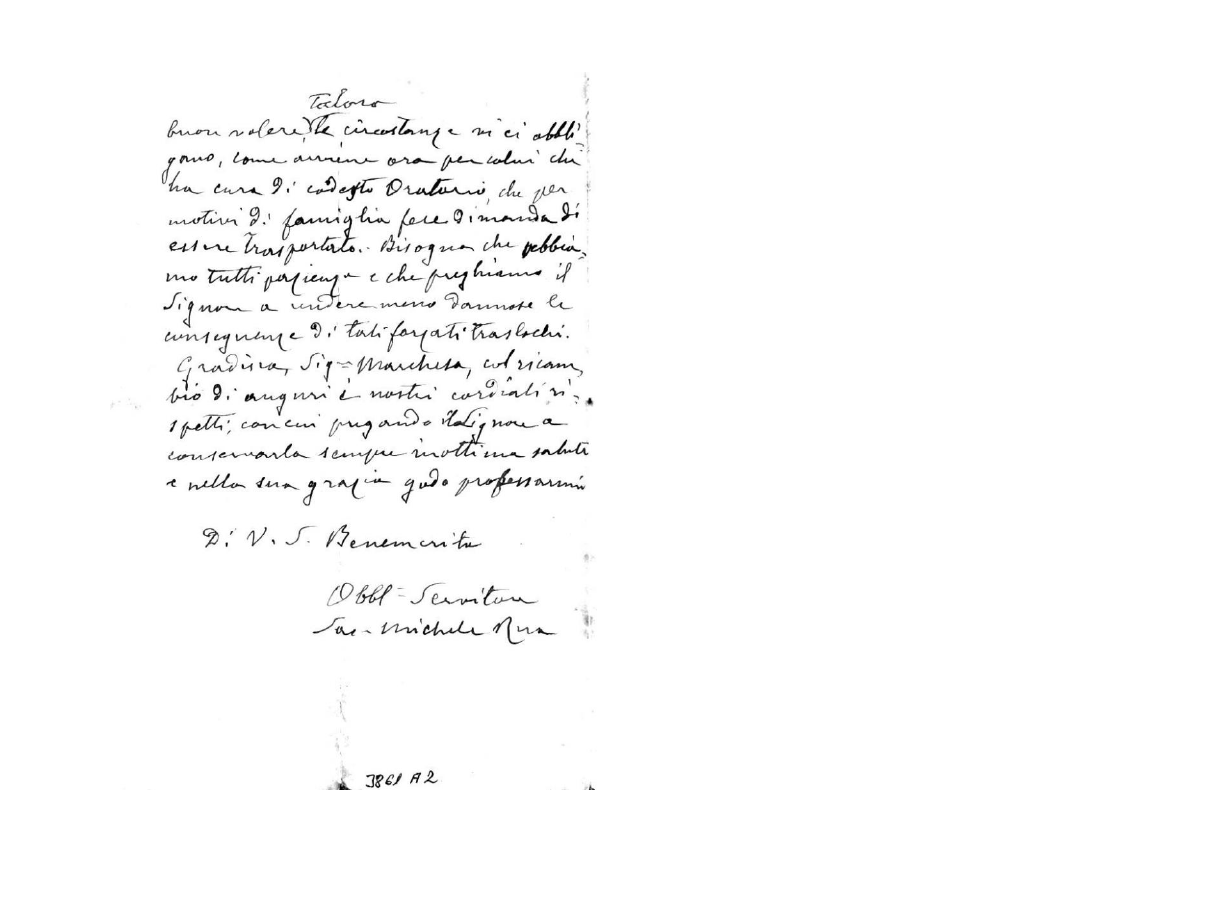 Talora
buon volere, le circostanze vi ci obbli-
gano, come avviene ora per colui che
ha cura di codesto Oratorio, che per
motivi di famiglia fece dimanda di
essere trasportato. Bisogna che abbia-
mo tutti pazienza e che preghiamo il
Signore a rendere meno dannose le
conseguenze di tali forzati traslochi.
Gradisca, Sig= Marchesa, col ricam-
bio di auguri i nostri cordiali ri-
spetti, con cui pregando il Signore a
conservarla sempre in ottima salute
e nella sua grazia godo professarmi
Di V. S. Benemerita
Obbl= Servitore
Sac. Michele Rua
3861 A2